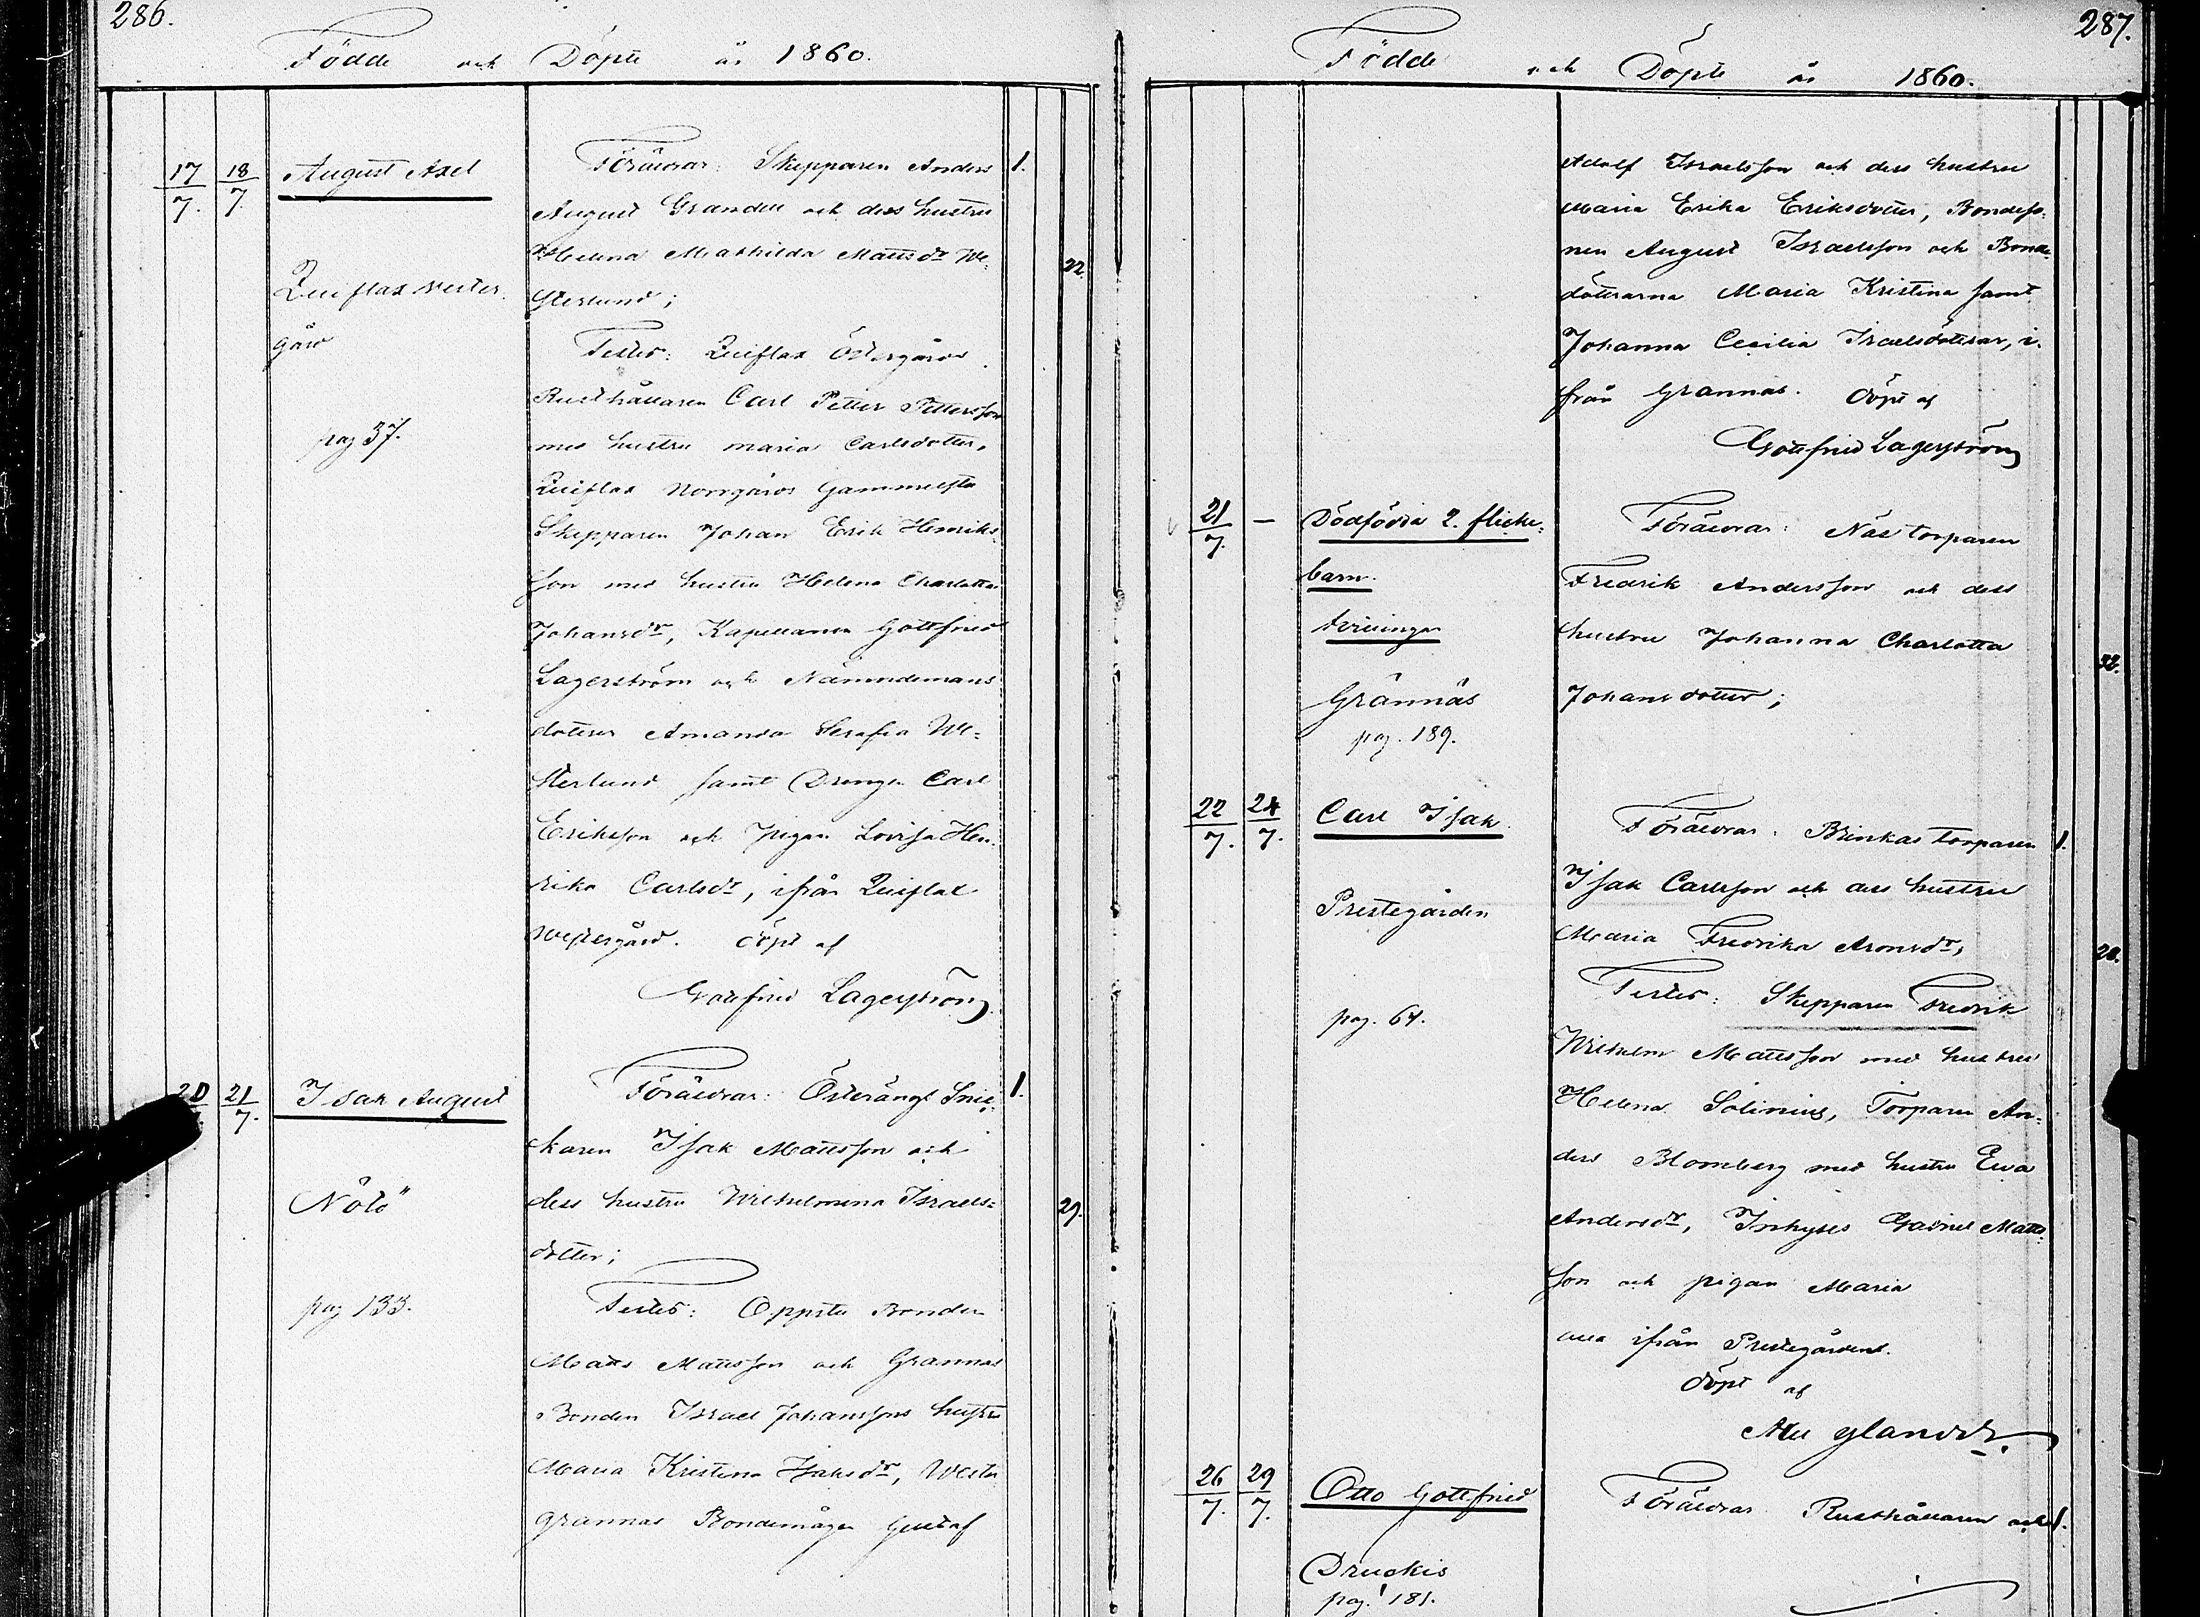 286.
Födde och Döpte år 1860.
17/7. 18/7. August Axel
Föräldrar: Skepparen Anders 1.
August Grandell och dess hustru
Helena Mathilda Mattsdr We= 22.
sterlund;
Qviflax Wester
gård
pag 37.
Testes: Qviflax Östergårds
Rusthållaren Carl Petter Pettersson
med hustru Maria Carlsdotter,
Qviflax Norrgårds Gammelsta
Skepparen Johan Erik Henriks
son med hustru Helena Charlotta
Johansdr, Kapellanen Gottfried
Lagerström och Nämndemans
dotteren Amanda Serafia We=
sterlund samt Drengen Carl
Eriksson och Pigan Lovisa Hen=
rika Carlsdr, ifrån Qviflax
Westergård. Döpt af
Gottfried Lagerström
20 21/7. Isak August
Föräldrar: Österängs Snic= 1.
karen Isak Mattsson och
dess hustru Wilhelmina Israels= 29.
dotter;
Nötö
pag 133.
Testes: Oppsta Bonden
Matts Mattsson och Grannas
Bonden Israel Johanssons hustru
Maria Kristina Isaksdr, Wester
grannas Bondemågen Gustaf
287.
Födde och Döpte år 1860.
Adolf Israelsson och dess hustru
Maria Erika Eriksdotter, Bondeso=
nen August Israelsson och Bonde
döttrarna Maria Kristina samt
Johanna Cecilia Israelsdöttrar, i=
från Grannas. Döpt af
Gottfried Lagerström
21/7. — Dödfödda 2. flicke=
barn.
tvillingar
Grännäs
pag. 189.
Föräldrar: Näs torparen
Fredrik Andersson och dess
hustru Johanna Charlotta
Johansdotter; 32.
22/7. 24/7. Carl Isak
Prestegården
pag. 64.
Föräldrar: Brinkas torparen 1.
Isak Carlsson och dess hustru
Maria Fredrika Aronsdr, 28.
Testes: Skepparen Fredrik
Wilhelm Mattsson med hustru
Helena Solinius, Torparen An=
ders Blomberg med hustru Ewa
Andersdr, Inhyses Gabriel Matts=
son och pigan Maria
alla ifrån Prestegården.
Döpt af
26/7. 29/7. Otto Gottfried
Föräldrar Rusthållaren och 1.
Druckis
pag. 181.